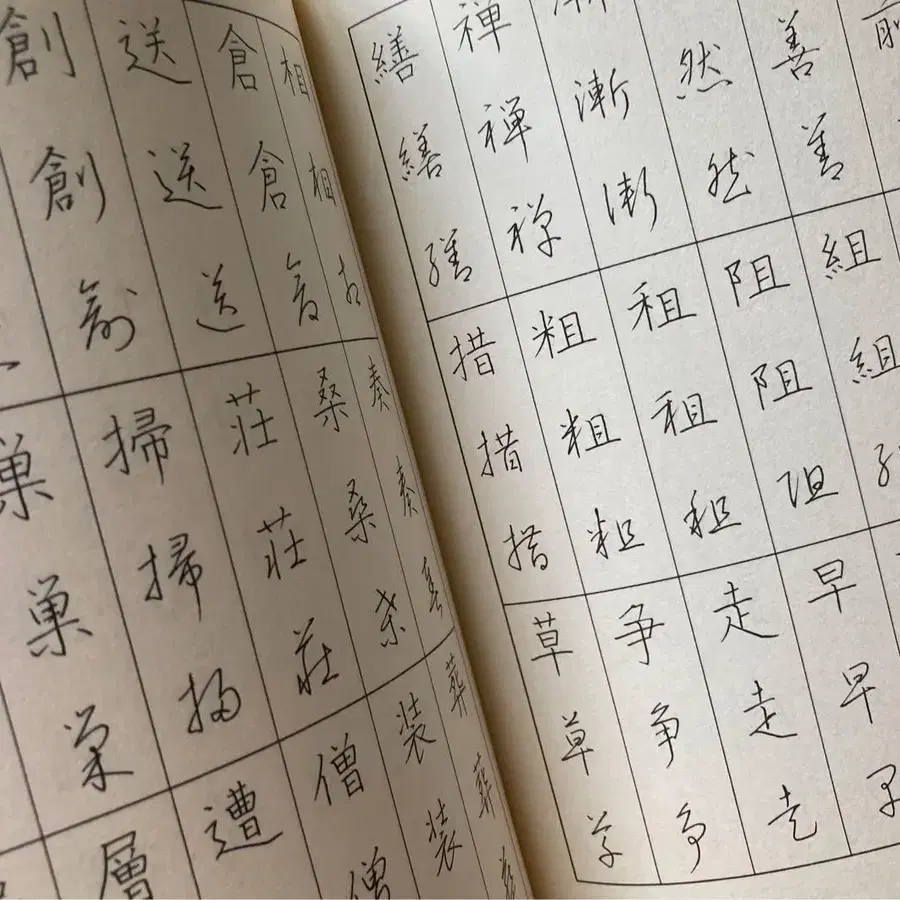 善善
然然
漸漸
禅禅禅
繕繕繕
組組
阻阻阻
租租租
粗粗粗
措措措
早早早
走走走
争争争
草草草
相相相
倉倉倉
送送送
創創創
奏奏奏
桑桑桑
荘荘荘
掃掃掃
巣巣巣
葬葬
装装
僧僧
遭
層